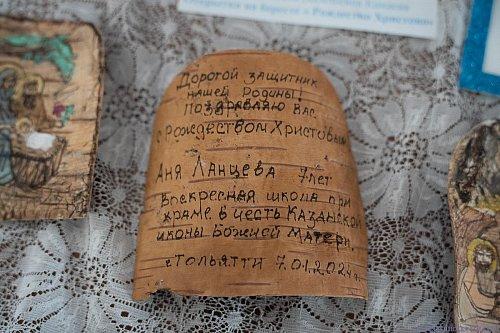 открытки на бересте « Рождество Христово»
Дорогой защитник
нашей Родины!
Поздравляю Вас
с Рождеством Христовым
Аня Ланцева 7лет
Воскресная школа при
храме в честь Казанской
иконы Божией Матери.
г Тольятти 7.01.2024г.